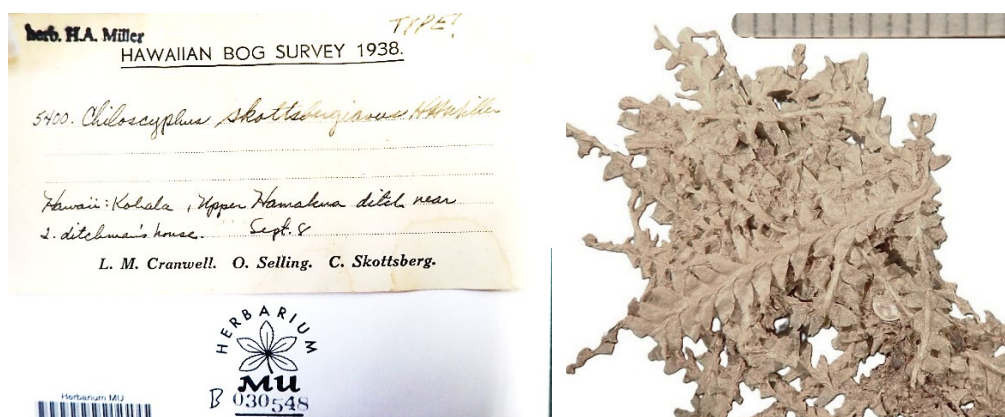 herb. H.A. Miller
TYPE!
HAWAIIAN BOG SURVEY 1938.
5400. Chiloscyphus skottsbergianus H.A. Miller
Hawaii: Kohala, Upper Hamakua ditch near
2. ditchman's house. Sept. 8
L. M. Cranwell. O. Selling. C. Skottsberg.
HERBARIUM
MU
B 030548
Herbarium MU